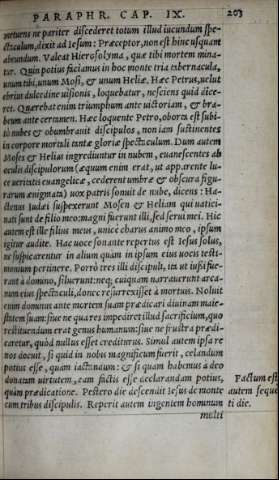 PARAPHR. CAP. IX. 203
metuens ne pariter discederet totum illud iucundum spe-
ctaculum, dixit ad Iesum: Præceptor, non est hinc usquam
abeundum. Valeat Hierosolyma, quæ tibi mortem mina-
tur. Quin potius faciamus in hoc monte tria tabernacula,
unum tibi, unum Mosi, & unum Heliæ. Hæc Petrus, uelut
ebrius dulcedine uisionis, loquebatur, nesciens quid dice-
ret. Quærebat enim triumphum ante uictoriam, & bra-
beum ante certamen. Hæc loquente Petro, oborta est subi-
to nubes & obumbrauit discipulos, non iam sustinentes
in corpore mortali tantæ gloriæ spectaculum. Dum autem
Moses & Helias ingrediuntur in nubem, euanescentes ab
oculis discipulorum (æquum enim erat, ut apparente lu-
ce ueritatis euangelicæ, cederent umbræ & obscura figu-
rarum ænigmata) uox patris sonuit de nube, dicens: Ha-
ctenus Iudæi suspexerunt Mosen & Heliam qui uatici-
nati sunt de filio meo: magni fuerunt illi, sed serui mei. Hic
autem est ille filius meus, unice charus animo meo, ipsum
igitur audite. Hac uoce sonante repertus est Iesus solus,
ne suspicarentur in alium quam in ipsum eius uocis testi-
monium pertinere. Porrò tres illi discipuli, ita ut iussi fue-
rant à domino, siluerunt: neque cuiquam narrauerunt arca-
num eius spectaculi, donec resurrexisset à mortuis. Noluit
enim dominus ante mortem suam prædicari diuinam maie-
statem suam: siue ne qua res impediret illud sacrificium, quo
restituendum erat genus humanum: siue ne frustra prædi-
caretur, quod nullus esset crediturus. Simul autem ipsa re
nos docuit, si quid in nobis magnificum fuerit, celandum
potius esse, quàm iactandum: & si quam habemus à deo
donatam uirtutem, eam factis esse declarandam potius,
quàm prædicatione. Postero die descendit Iesus de monte
cum tribus discipulis. Reperit autem ingentem hominum
multi
Factum est
autem sequē
ti die.